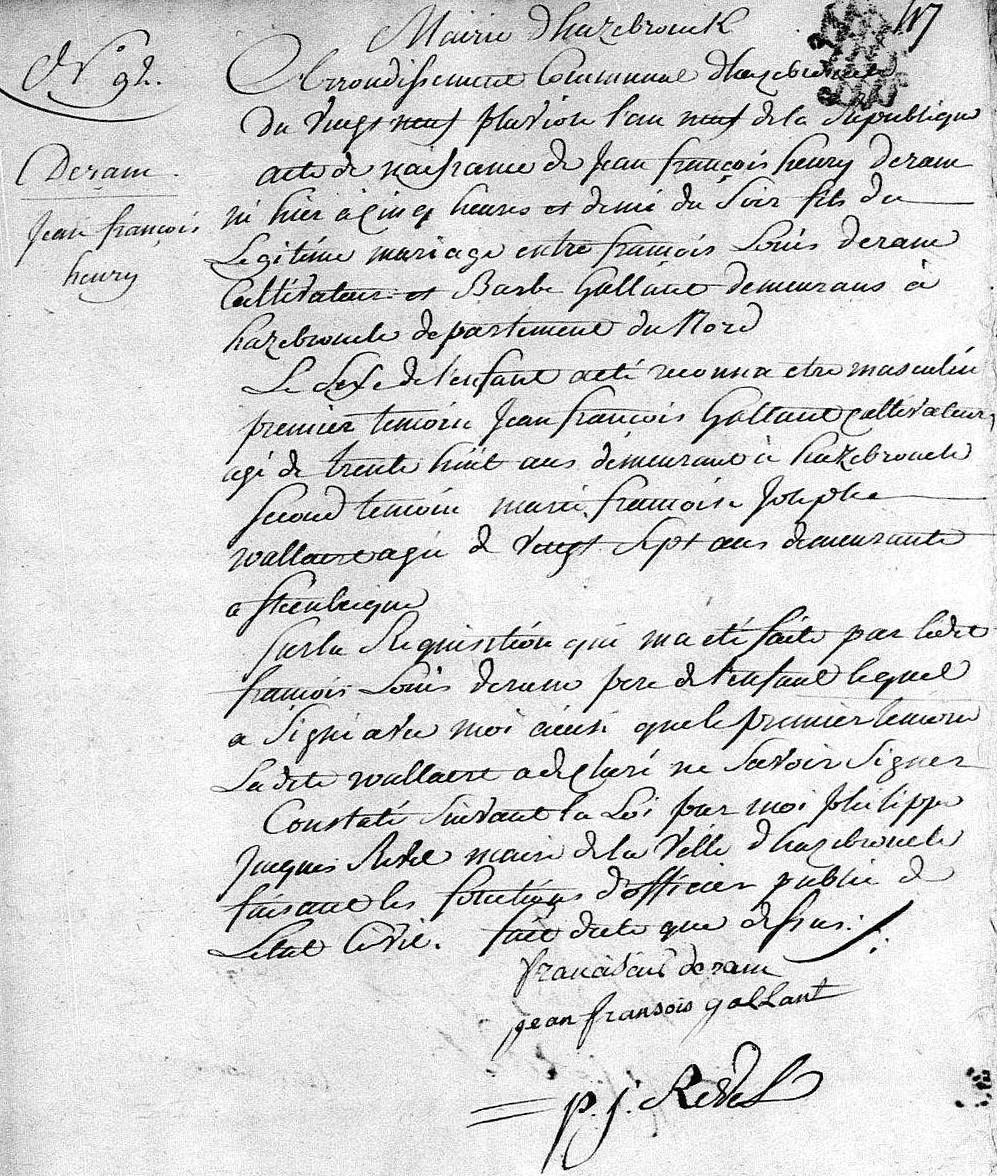 Mairie d'hazebrouck
47
N° 92.
Arrondissement Communal d'hazebrouck
du Vingt neuf pluviose l'an neuf de la Republique
Deram.
acte de naissance de Jean françois henry deram
Jean françois
né hier à cinq heures et demi du Soir fils du
henry
Légitime mariage entre françois Louis deram
Cultivateur et Barbe Gallant demeurans à
hazebrouck departement du Nord
Le Sexe de l'enfant a été reconnu etre masculin
premier temoin Jean françois Gallant cultivateur
agé de trente huit ans demeurant à hazebrouck
second temoin marie francoise Josephe
wallaert agée de Vingt Sept ans demeurante
a Steenbecque
Sur la Requisition qui m'a été faite par ledit
françois Louis deram pere de l'enfant lequel
a Signé avec moi ainsi que le premier temoin
Ladite wallaert a declaré ne Savoir Signer
Constaté Suivant la Loi par moi philippe
Jacques Revel maire de la Ville d'hazebrouck
faisant les fonctions d'officier public de
L'etat Civil. fait date que dessus.
francois deram
jean fransois gallant
p. j. Revel